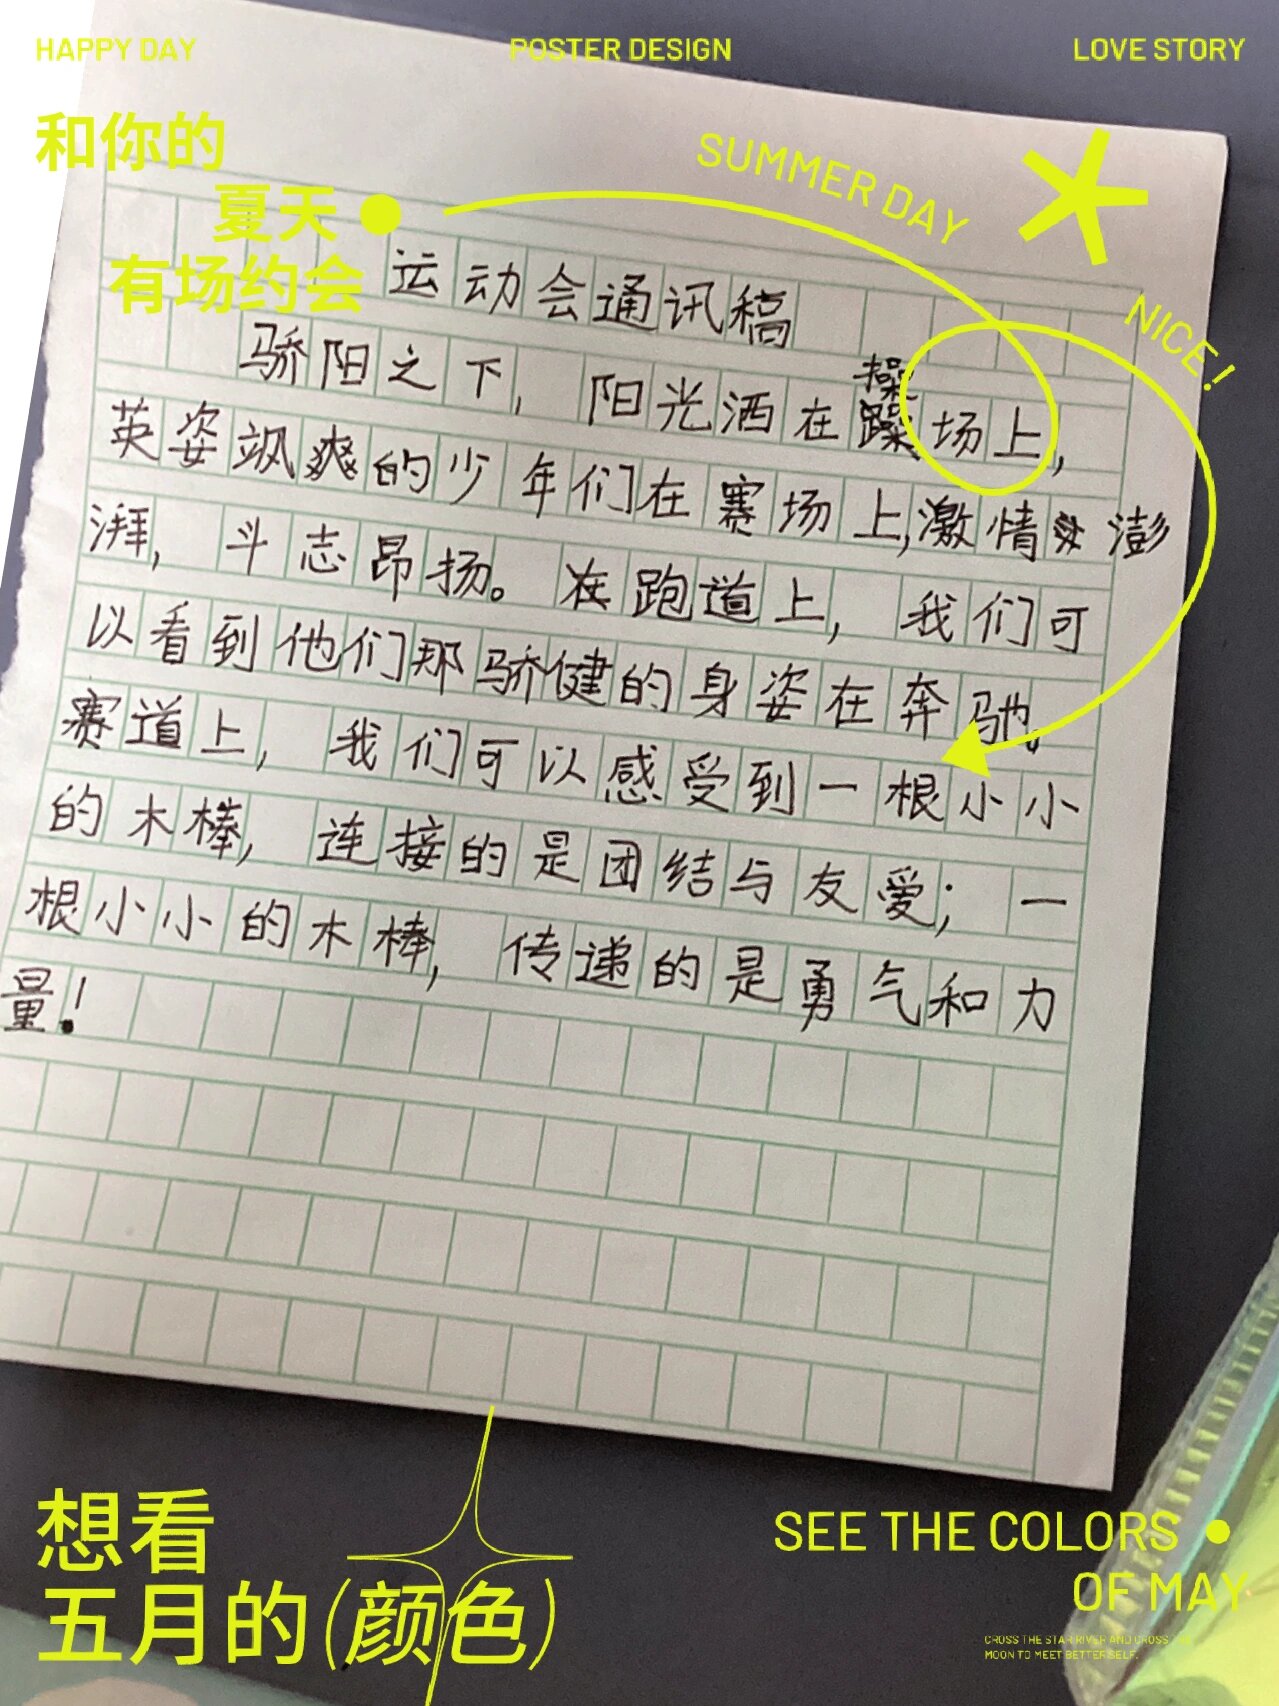 HAPPY DAY
POSTER DESIGN
LOVE STORY
和你的
夏天
有场约会
SUMMER DAY
NICE!
运动会通讯稿
骄阳之下，阳光洒在操场上，
英姿飒爽的少年们在赛场上，激情澎
湃，斗志昂扬。在跑道上，我们可
以看到他们那骄健的身姿在奔驰。
赛道上，我们可以感受到一根小小
的木棒，连接的是团结与友爱；一
根小小的木棒，传递的是勇气和力
量！
想看
五月的(颜色)
SEE THE COLORS
OF MAY
CROSS THE STAR RIVER AND CROSS
MOON TO MEET BETTER SELF.